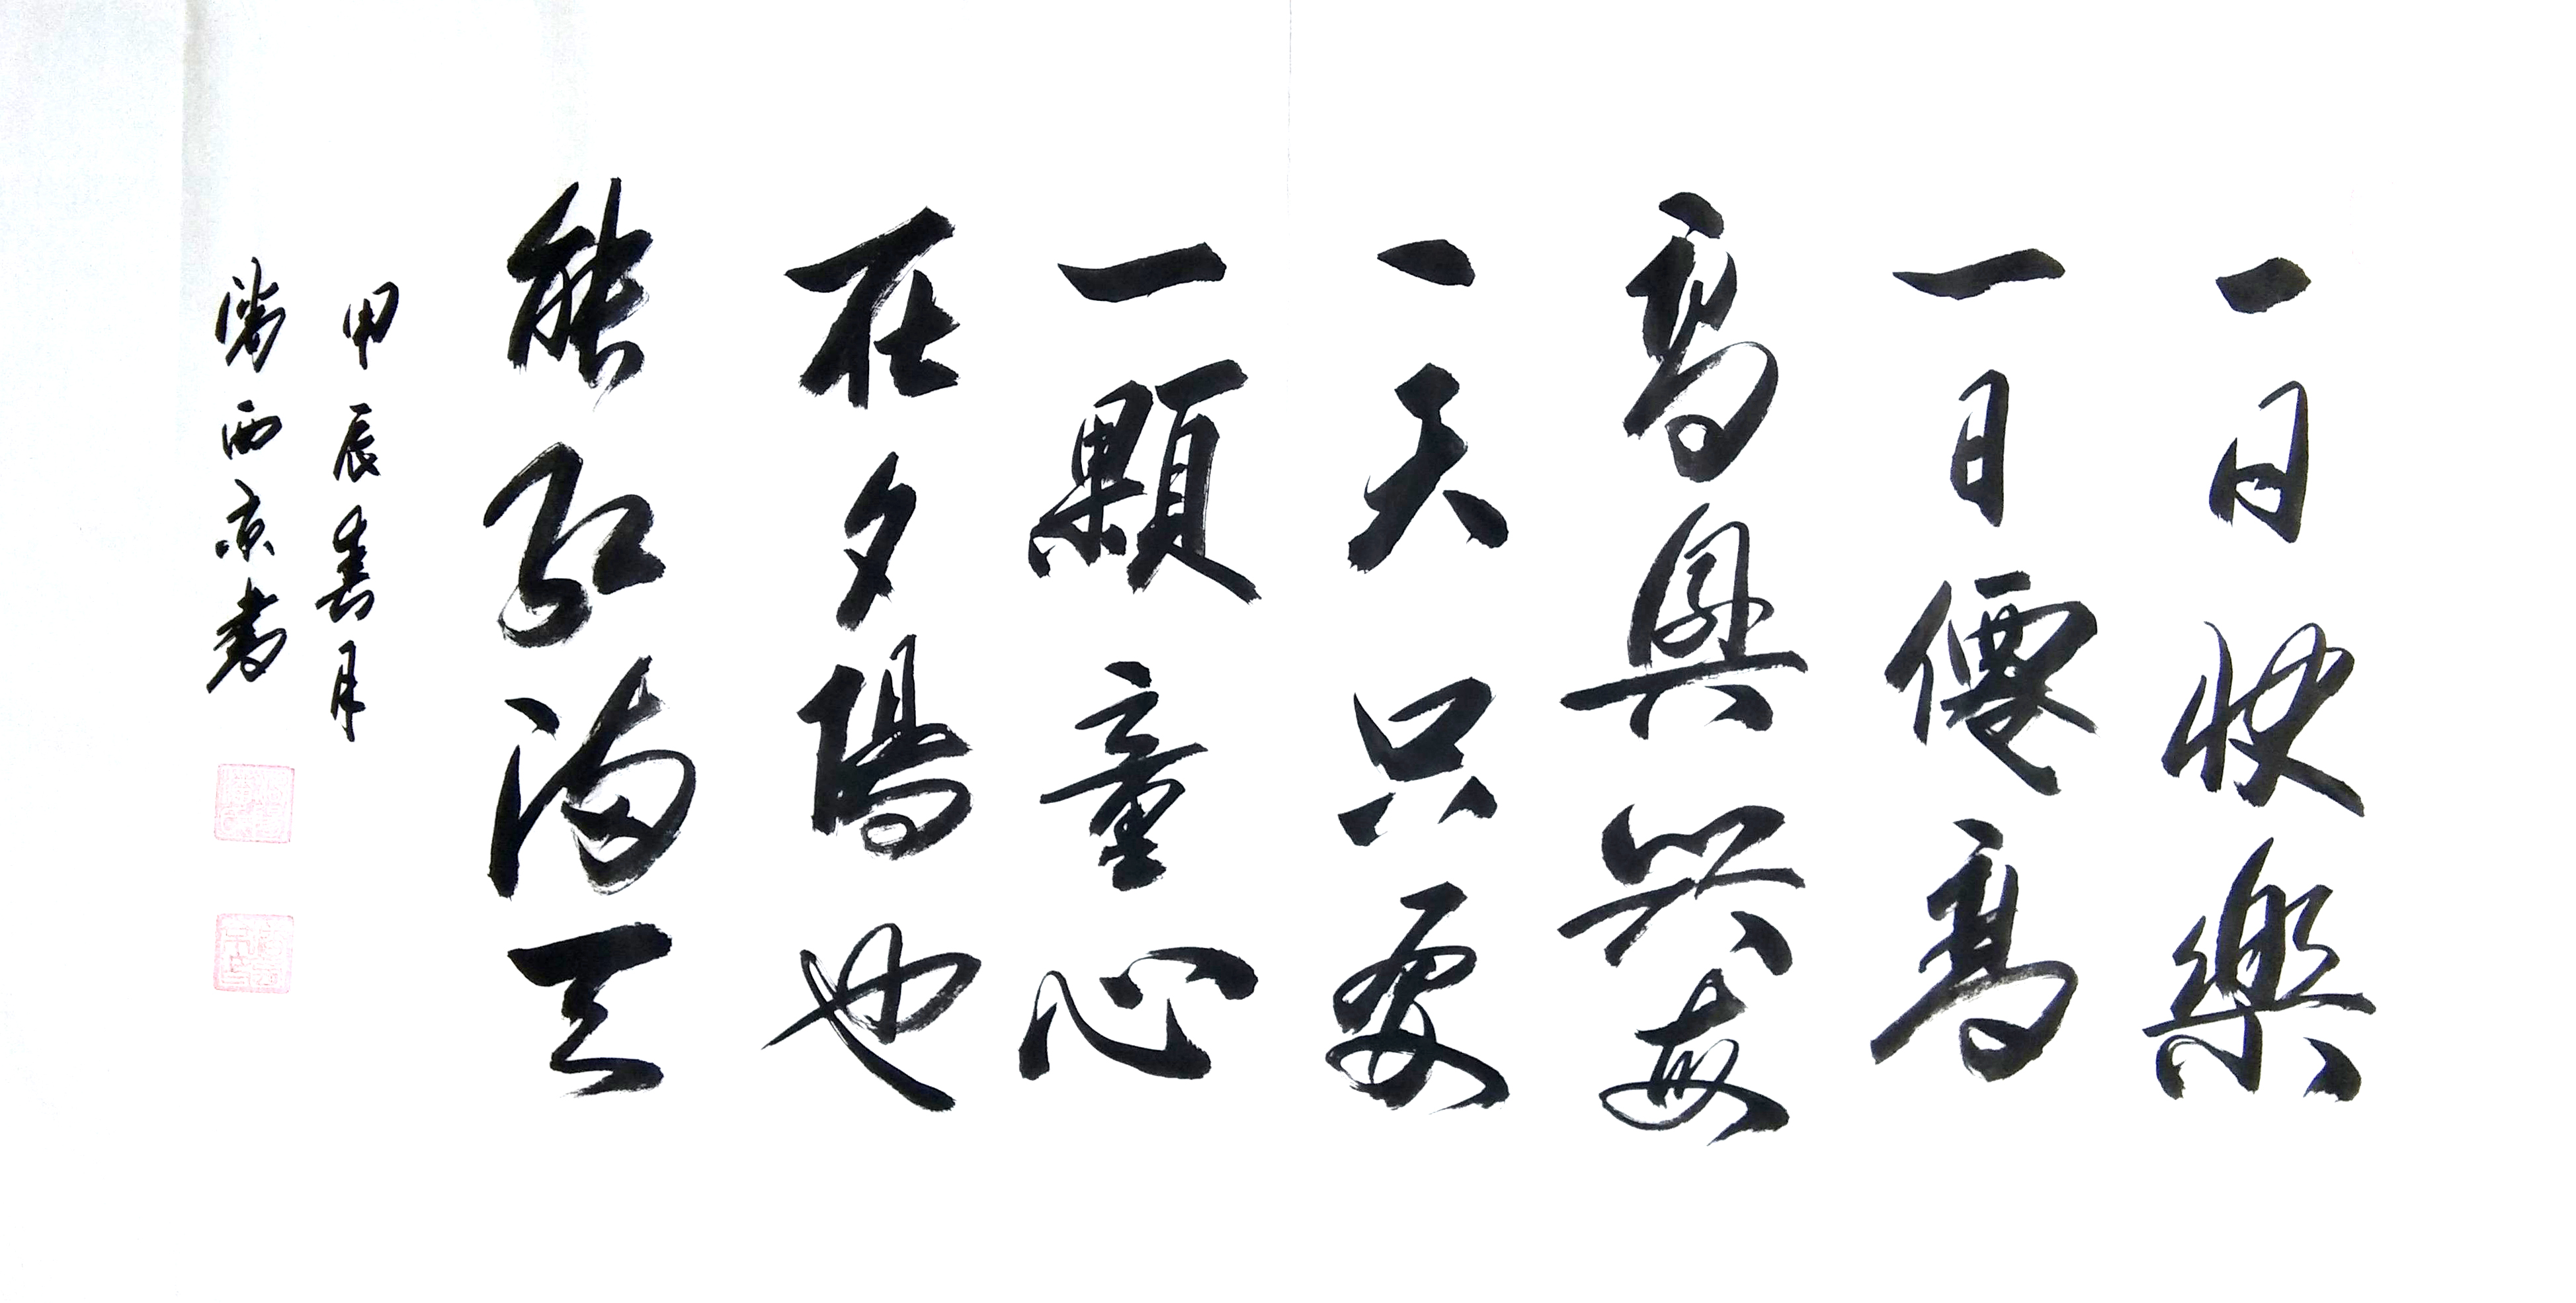 一日快樂
一日僊高
高興兴每
一天只要
一顆童心
在夕陽也
能紅滿天
甲辰月
西京書